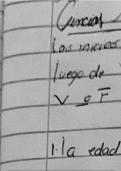 Ciencias
los inicios
luego de
V o F
1. la edad